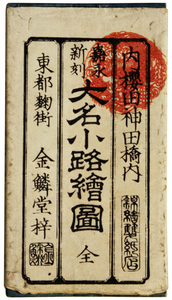 内櫻田神田橋内
錦繪雙紙店
嘉永新刻
大名小路繪圖
全
東都麹街
金鱗堂梓